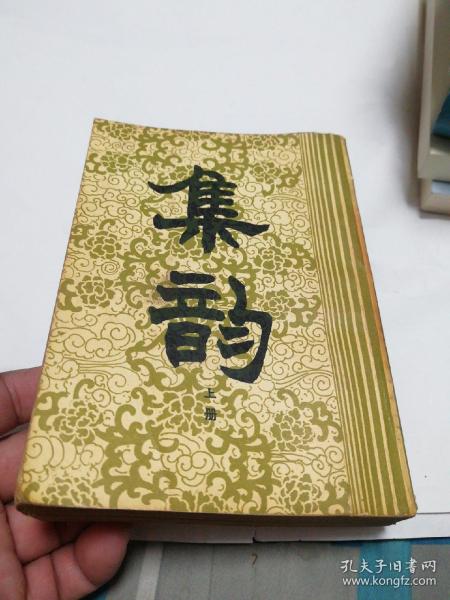 集韵
上册
孔夫子旧书网
www.kongfz.com